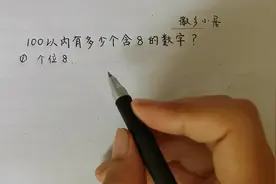 100以内有多少个含8的数字?
① 个位8.